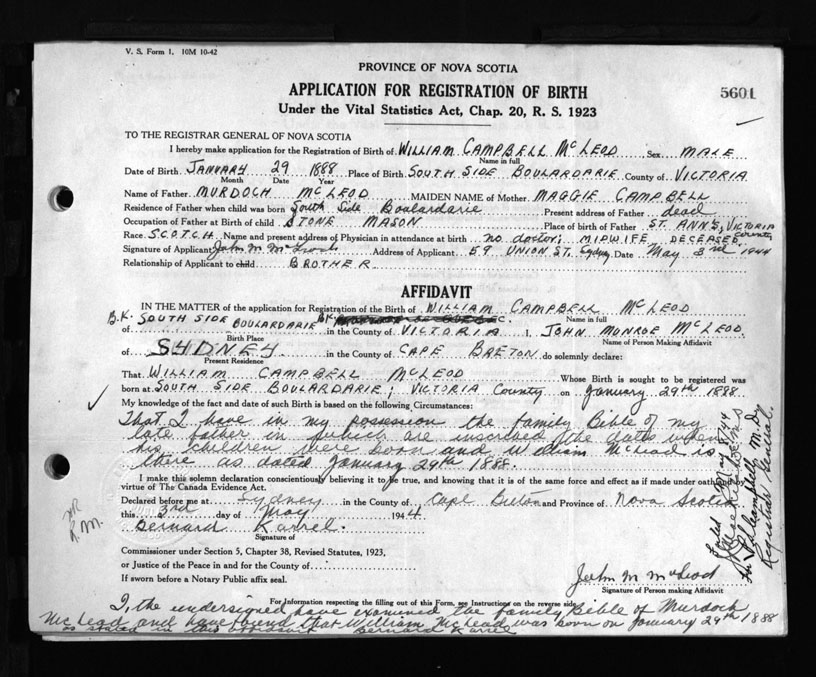 V. S. Form 1. 10M 10-42
PROVINCE OF NOVA SCOTIA
APPLICATION FOR REGISTRATION OF BIRTH
5601
Under the Vital Statistics Act, Chap. 20, R. S. 1923
TO THE REGISTRAR GENERAL OF NOVA SCOTIA
I hereby make application for the Registration of Birth of WILLIAM CAMPBELL McLEOD Sex MALE
Name in full
Date of Birth JANUARY 29 1888 Place of Birth SOUTH SIDE BOULARDARIE County of VICTORIA
Month Date Year
Name of Father MURDOCH McLEOD MAIDEN NAME of Mother MAGGIE CAMPBELL
Residence of Father when child was born South Side Boulardarie Present address of Father dead
Occupation of Father at Birth of child STONE MASON Place of birth of Father ST. ANN'S, VICTORIA County
Race SCOTCH Name and present address of Physician in attendance at birth no doctor; MIDWIFE DECEASED
Signature of Applicant John M. McLeod Address of Applicant 59 UNION ST. Sydney Date May 3rd 1944
Relationship of Applicant to child BROTHER
AFFIDAVIT
IN THE MATTER of the application for Registration of the Birth of WILLIAM CAMPBELL McLEOD
Name in full
B.K. SOUTH SIDE B.K.
of BOULARDARIE in the County of VICTORIA I, JOHN MUNROE McLEOD
Birth Place Name of Person Making Affidavit
of SYDNEY in the County of CAPE BRETON do solemnly declare:
Present Residence
That WILLIAM CAMPBELL McLEOD Whose Birth is sought to be registered was
born at SOUTH SIDE BOULARDARIE; VICTORIA County on January 29th 1888
My knowledge of the fact and date of such Birth is based on the following Circumstances:
That I have in my possession the family Bible of my
late father in which are inscribed the dates when
his children were born and William McLeod is
there as dated January 29th 1888.
I make this solemn declaration conscientiously believing it to be true, and knowing that it is of the same force and effect as if made under oath by
virtue of The Canada Evidence Act.
Declared before me at Sydney in the County of Cape Breton and Province of Nova Scotia
this 3rd day of May 1944
Bernard Karrel.
Signature of
Commissioner under Section 5, Chapter 38, Revised Statutes, 1923,
or Justice of the Peace in and for the County of
If sworn before a Notary Public affix seal.
John M McLeod
Signature of Person making Affidavit
For Information respecting the filling out of this Form, see Instructions on the reverse side
I, the undersigned have examined the family Bible of Murdoch
McLeod and have found that William McLeod was born on January 29th 1888
as stated in this affidavit Bernard Karrel
R.M.
May 8/44
Campbell, M.D.
Registrar General.